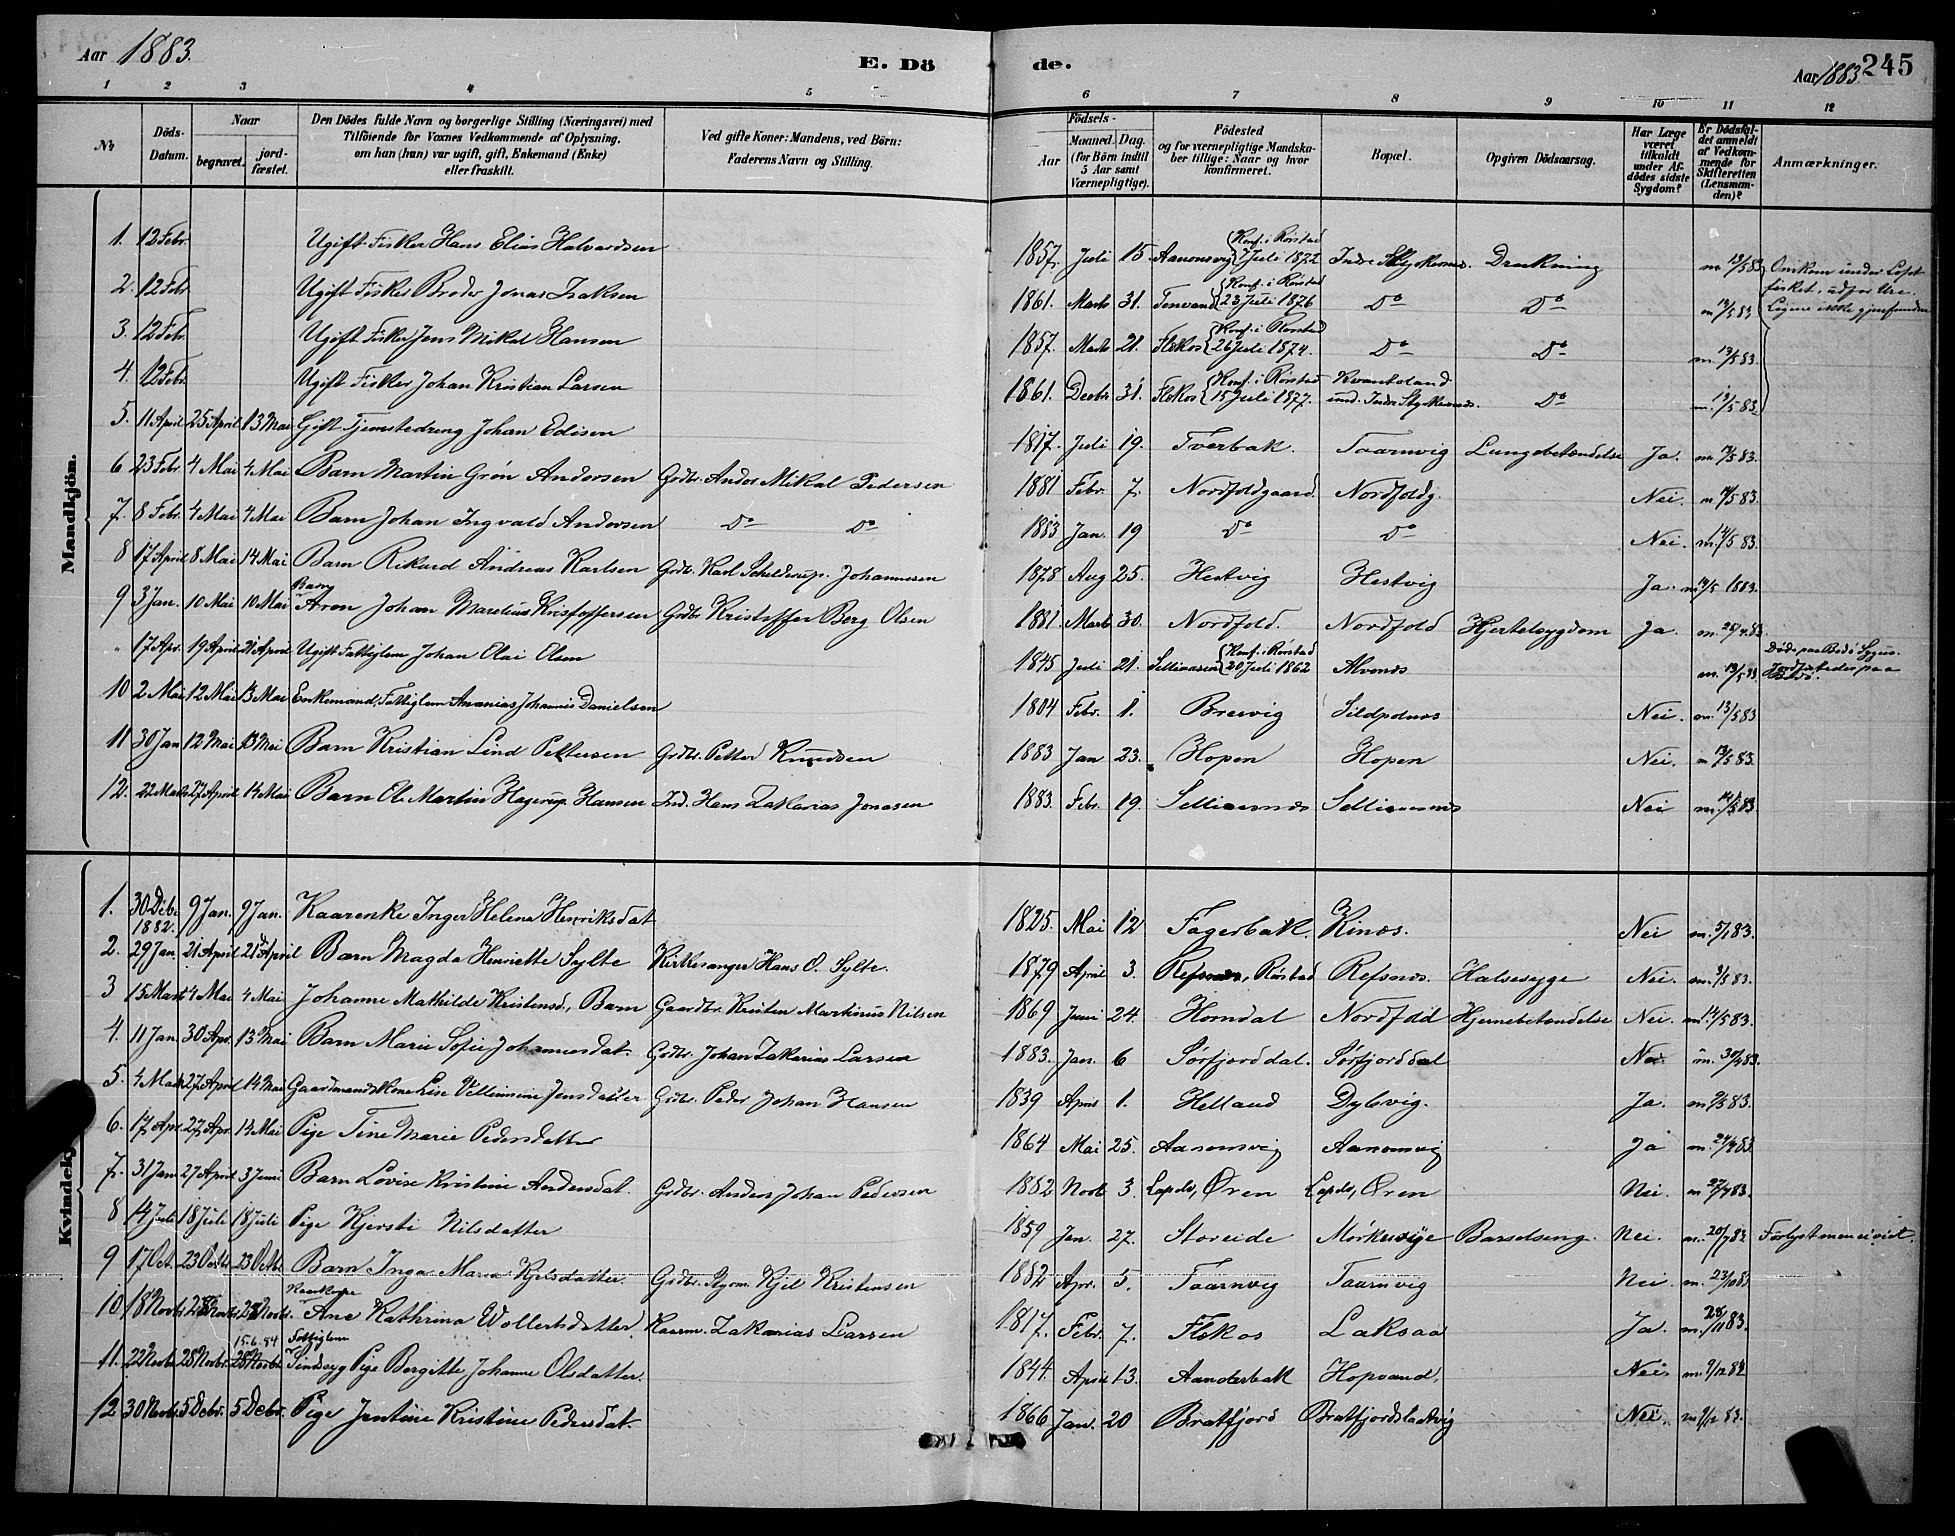 Aar 1883. E. Dö de. Aar 1883. 245
1 2 3 4 5 6 7 8 9 10 11 12
No Döds-Datum. Naar begravet. jordfæstet.
Den Dödes fulde Navn og borgerlige Stilling (Næringsvei) med
Tilföiende for Voxnes Vedkommende af Oplysning,
om han (hun) var ugift, gift, Enkemand (Enke)
eller fraskilt.
Ved gifte Koner: Mandens, ved Börn:
Faderens Navn og Stilling.
Födsels-
Aar Maaned. Dag.
(for Börn indtil
5 Aar samt
Værnepligtige).
Födested
og for værnepligtige Mandskaber tillige: Naar og hvor
konfirmeret.
Bopæl.
Opgiven Dödsaarsag.
Har Læge
været
tilkaldt
under Afdödes sidste
Sygdom?
Er Dödsfaldet anmeldt
af Vedkommende for
Skifteretten
(Lensmanden)?
Anmærkninger.
Mandkjön.
1. 12 Febr. Ugift Fisker Hans Elias Halvardsen 1857. Juli 15. Aanonsvig {Konf. i Rörstad 7 Juli 1872 Indre Styrkesnes. Drukning m. 13/5 83 Omkom under Lofotfisket, udfor Ure. Ligene ikke gjenfundne
2. 12 Febr Ugift Fisker Broder Jonas Isaksen 1861. Marts 31. Tenvand {Konf. i Rörstad 23 Juli 1876 Do Do m 13/5 83
3. 12 Febr Ugift Fisker Jens Mikal Hansen 1857. Marts 21. Flekos {Konf. i Rörstad 26 Juli 1874. Do Do m 13/5 83.
4. 12 Febr. Ugift Fisker Johan Kristian Larsen 1861. Decbr 31. Flekos {Konf. i Rörstad 15 Juli 1877. Kvanteland und. Indre Styrkesnes. Do m. 13/5 83.
5. 11 April 25 April 13 Mai Gift Tjenestedreng Johan Edisen 1817. Juli 19. Tverbak. Taarnvig Lungebetændelse Ja. m 13/5 83.
6 23 Febr. 4 Mai 4 Mai Barn Martin Grön Andersen Grdbr. Anders Mikal Pedersen 1881 Febr. 7. Nordfoldgaard. Nordfoldg. Nei. m 14/5 83.
7. 8 Febr. 4 Mai 4 Mai Barn Johan Ingvald Andersen Do Do 1883 Jan. 19 Do Do Nei. m. 14/5 83.
8 17 April 8 Mai 14 Mai Barn Rikard Andreas Karlsen Grdbr. Karl Schelderup Johannesen 1878 Aug 25. Hestvig Hestvig Ja. m 14/5 1883.
9 3 Jan. 10 Mai 10 Mai Barn Aron Johan Marelius Kristoffersen Grdbr Kristoffer Berg Olsen 1881. Marts 30. Nordfold. Nordfold Hjertesygdom Ja m. 28/4 83.
" 17 Apr. 19 April 21 April Ugift Fattiglem Johan Olai Olsen 1845 Juli 21. {Konf. i Rörstad 20 Juli 1862 Alvenes m. 13/5 83 Döde paa Bodö Sygeh. Jordfæstedes paa Bodö.
10 2 Mai 12 Mai 13 Mai Enkemand, Fattiglem Ananias Johannes Danielsen 1804 Febr. 1. Brevig Sildpolnes Nei. m. 13/5 83
11 30 Jan 12 Mai 13 Mai Barn Kristian Lind Pettersen Grdbr. Petter Knudsen 1883 Jan 23. Hopen Hopen Nei. m 13/5 83.
12. 22 Marts 27 April 14 Mai Barn Ole Martin Hagerup Hansen Ind. Hans Zakarias Jonasen 1883. Febr. 19. Nei m. 14/5 83.
Kvindekj
1. 30 Dcbr 1882. 9 Jan. 9 Jan. Kaarenke Inger Helena Henriksdat 1825. Mai 12 Fagerbak. Kines. Nei m. 5/1 83.
2. 29 Jan. 21 April 21 April Barn Magda Henriette Sylte Kirkesanger Hans O. Sylte. 1879 April 3. Refsnæs, Rörstad Refsnes. Halsesyge Nei. m. 3/5 83.
3 15 Marts 4 Mai 4 Mai Johanne Mathilde Kristensd., Barn Gaardbr. Kristen Martinus Nilsen 1869 Juni 24. Horndal Nordfold Hjernebetændelse Nei. m. 14/5 83.
4. 11 Jan. 30 Apr. 13 Mai Barn Marie Sofie Johannesdat. Grdbr. Johan Zakarias Larsen 1883. Jan. 6 Sörfjorddal. Sörfjorddal Nei m. 30/4 83.
5. 4 Marts 27 April 14 Mai Gaardmandskone Lise Vellemine Jensdatter Grdbr. Peder Johan Hansen 1839 April 1. Helland Dybvig. Ja. m 2/5 83.
6. 17 Apr. 27 Apr. 14 Mai Pige Tine Marie Pedersdatter 1864 Mai 25. Aanonsvig Aanonsvig Ja m. 24/4 83
7. 31 Jan 27 April 3 Juni Barn Lovise Kristine Andersdat. Grdbr. Anders Johan Pedersen 1882 Novb 3. Lapdr, Øren Lapdr, Øren Nei. m 27/4 83.
8 14 Juli 18 Juli 18 Juli Pige Kjersti Nilsdatter 1859 Jan. 27. Storeide Mörkesvige Barselseng. Nei. m. 20/7 83. Forlyst men ei viet
9 17 Oct. 23 Octbr 23 Octbr. Barn Inga Maria Kjelsdatter. Grdbr. Kjel Kristensen 1882 Apr. 5. Taarnvig Taarnvig Nei. m. 23/10 83
10 18 Novbr 28 Novbr 28 Novbr. Kaarkone Ane Kathrina Wollertsdatter Kaarm. Zakarias Larsen 1817. Febr. 7. Flekos Laksaa Ja. m. 28/11 83.
11. 22 Novbr. 28 Novbr. 15.6.84 28 Novbr. Fattiglem Sindssyg Pige Bergitte Johanne Olsdatter. 1844. April 13. Aanderbak Hopvand. Nei. m. 9/12 83
12 30 Novbr. 5 Debr. 5 Debr. Pige Jentine Kristine Pedersdat. 1866 Jan. 20 Bratfjord Bratfjordsladvig Nei. m 9/12 83.